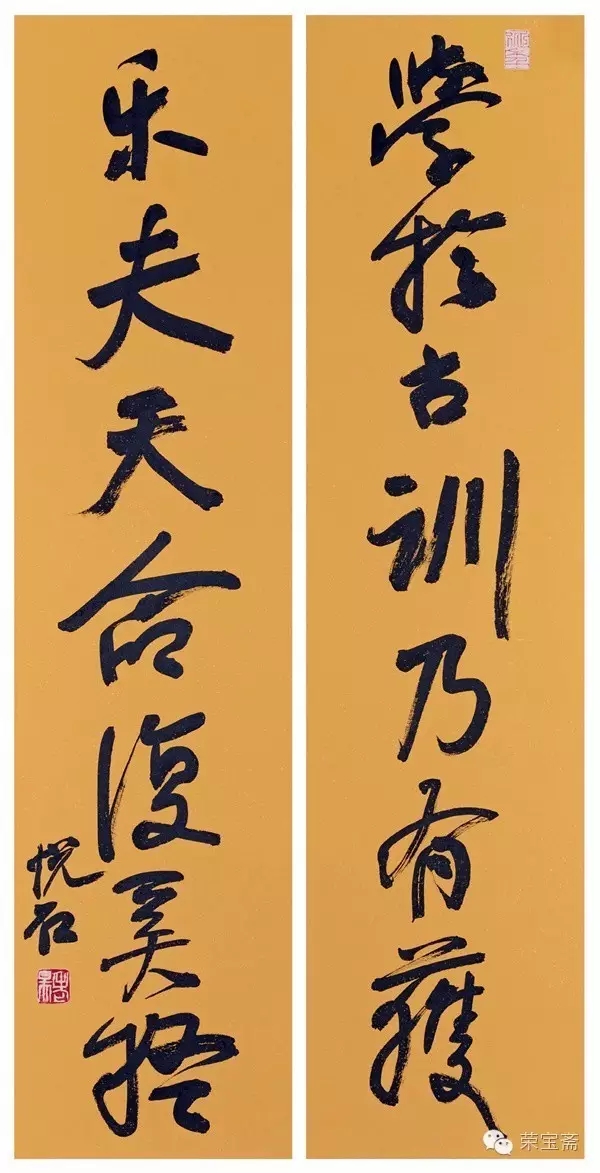 學於古訓乃有獲
乐夫天命復奚疑
悦石
荣宝斋